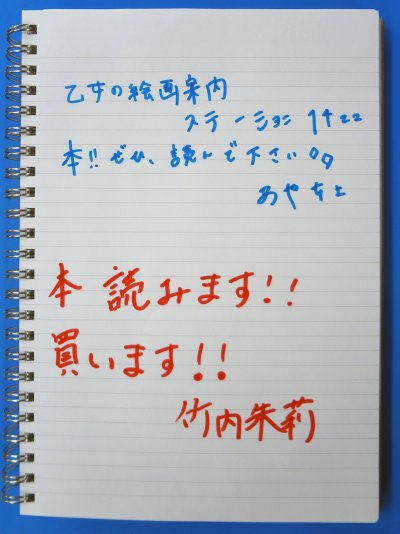 乙女の絵画案内
ステーション1422
本!! ぜひ、読んで下さい
あやちょ
本 読みます!!
買います!!
竹内朱莉